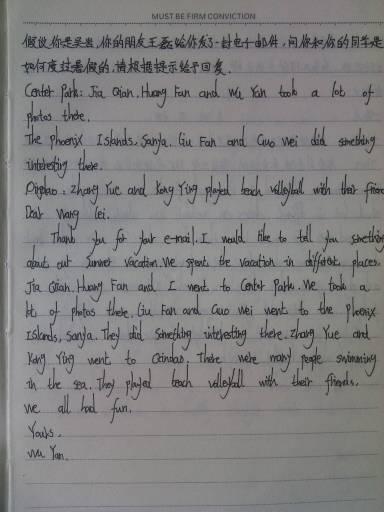 MUST BE FIRM CONVICTION
假设你是吴燕,你的朋友王磊给你发了一封电子邮件,问你和你的同学是
如何度过暑假的,请根据提示给予回复.
Center Park: Jia Qian. Huang Fan and Wu Yan took a lot of
photos there.
The phoenix Islands, Sanya. Liu Fan and Guo wei did something
interesting there.
Qingdao: Zhang Yue and Kong Ying played beach volleyball with their friend
Dear Wang Lei.
Thank you for your e-mail. I would like to tell you something
about out summer vacation. We spent the vacation in different places.
Jia Qian. Huang Fan and I went to Center Park. We took a
lot of photos there. Liu Fan and Guo wei went to the phoenix
Islands, Sanya. They did something interesting there. Zhang Yue and
Kong Ying went to Qindao. There were many people swimming
in the sea. They played beach volleyball with their friends.
we all had fun.
Yours.
Wu Yan.